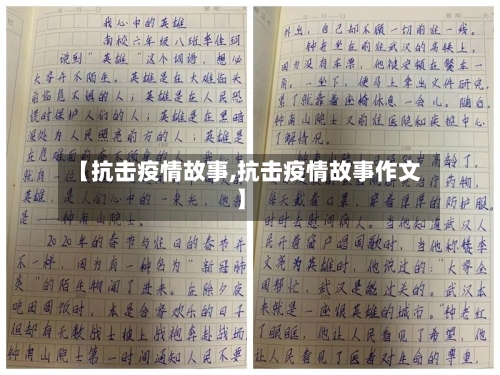 我心中的英雄
南校六年级八班李佳珂
说到“英雄”这个词语,想必
大家并不陌生。英雄是在大难临头
前临危不惧的人;英雄是在人民恐
慌时保护人们的人;英雄是在黑暗
深处为人民照亮前方的人;英雄是
在危难面前
就是一位
英雄,是人们心中的一束光,他
是——钟南山院士。
2020年的春节与往日的春节并
不一样,因为有一种名为“新冠肺
炎”的陌生物闯了进来。在除夕夜
吃团圆饭时,本是合家欢乐的日子
但却有无数战士披上战袍奔赴战场
钟南山院士第一时间通知人民不要
外出,自己却不顾一切前往一线。
钟老坐在前往武汉的高铁上,
因为没有车票,他被安顿在餐车一
角。一坐下,便马上拿出文件研究,
累了就靠着座椅休息一会儿。随后,
钟南山院士又前往医院和疾控中心
了解情况。
高龄了,
药物,
每天戴着口罩,穿着厚厚的防护服
时时去慰问病人。当他知道武汉人
民开着窗户唱国歌时,当他称赞李
文亮为英雄时,他说过的:“大家全
国帮忙,武汉是能过关的。武汉本
来就是一座很英雄的城市。”钟老红
了眼眶,他让人民看见了希望,他
让人民看见了医者对生命的尊重,
【抗击疫情故事,抗击疫情故事作文
】